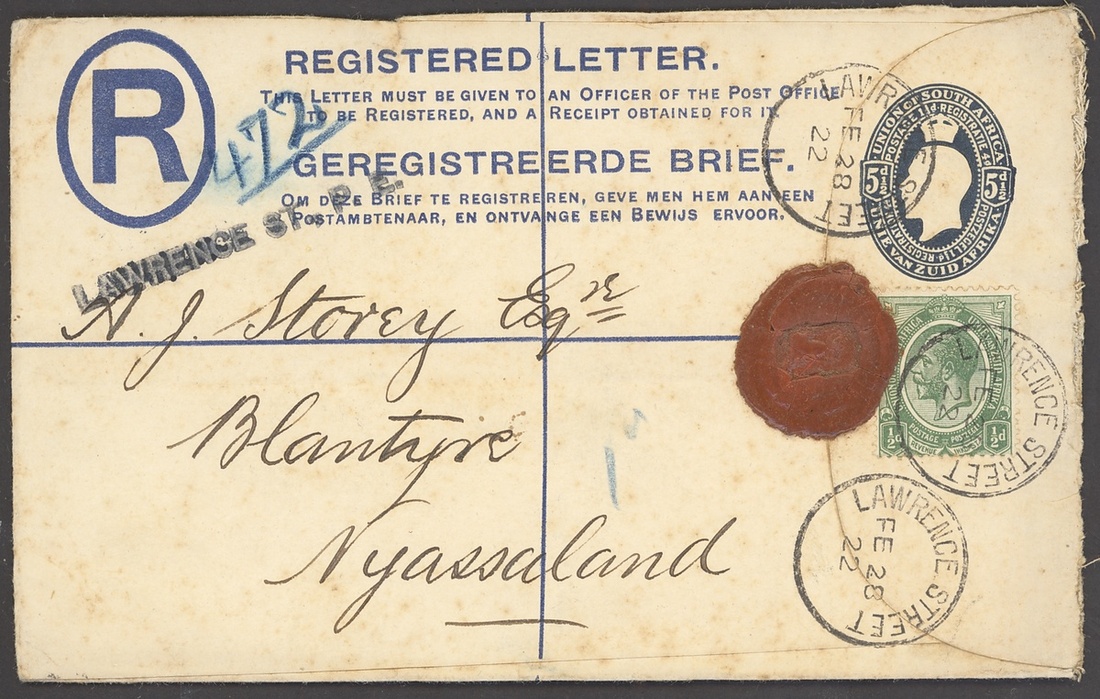 R
REGISTERED LETTER.
THIS LETTER MUST BE GIVEN TO AN OFFICER OF THE POST OFFICE
TO BE REGISTERED, AND A RECEIPT OBTAINED FOR IT
GEREGISTREERDE BRIEF.
OM DEZE BRIEF TE REGISTREREN, GEVE MEN HEM AAN EEN
POSTAMBTENAAR, EN ONTVANGE EEN BEWIJS ERVOOR.
472
LAWRENCE ST., P. E.
UNION OF SOUTH AFRICA
POSTAGE 1½d REGISTRATIE 4d
POSTZEGEL 1½d REGISTRATION 4d
UNIE VAN ZUID AFRIKA
5½d 5½d
LAWRENCE STREET
FE 28
22
A. J. Storey Esqre
Blantyre
Nyassaland
½d ½d
POSTAGE POSTZEGEL
REVENUE INKOMST
LAWRENCE STREET
FE 28
LAWRENCE STREET
FE 28
22